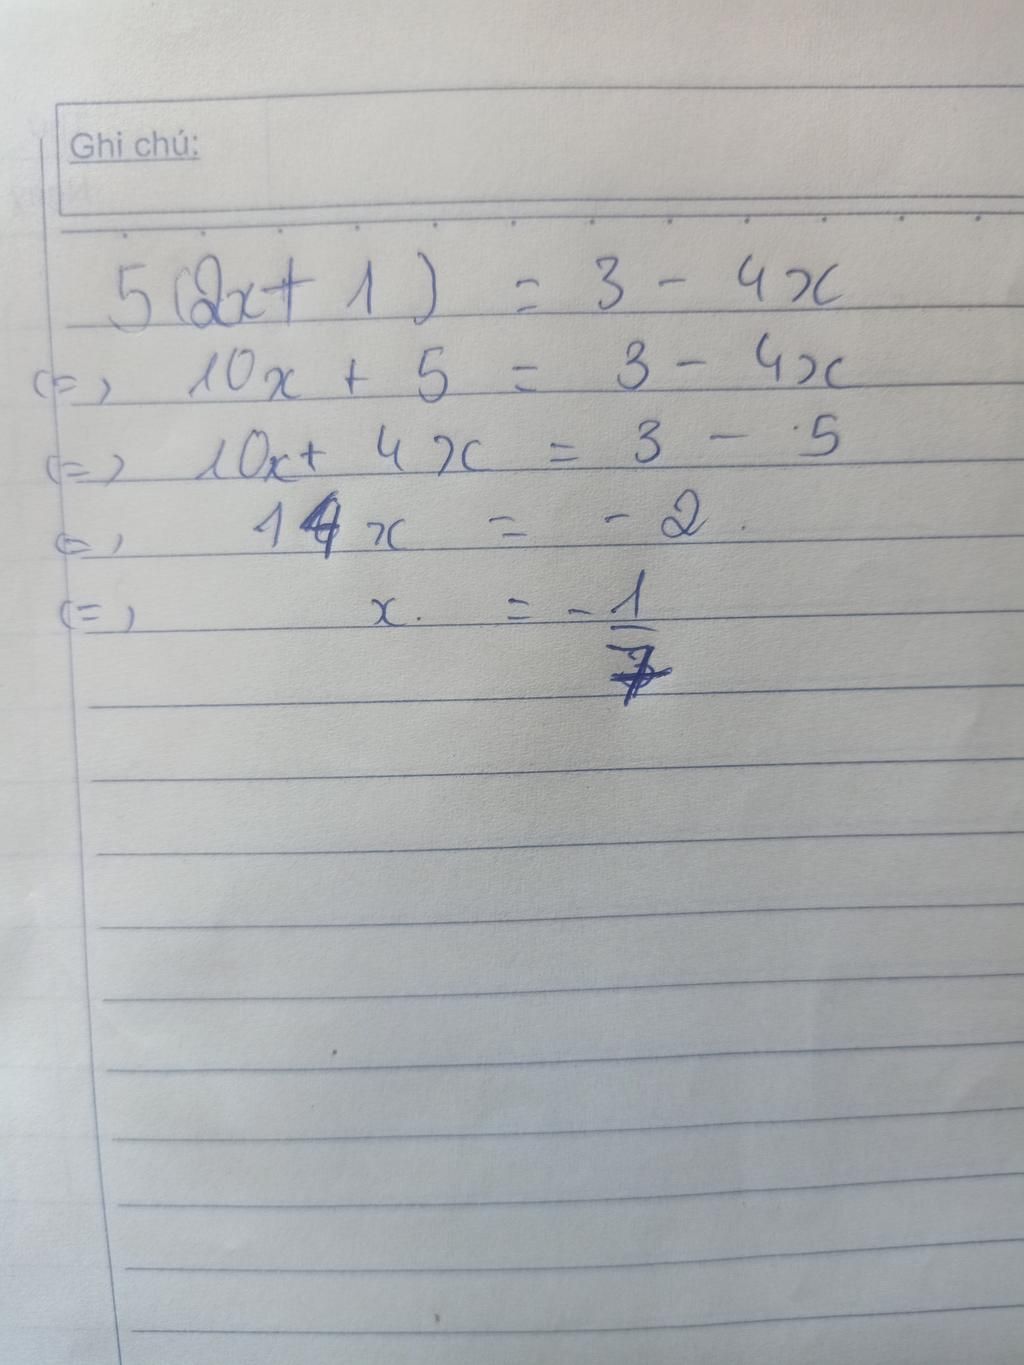 Ghi chú:
5(2x + 1) = 3 - 4x
(=) 10x + 5 = 3 - 4x
(=) 10x + 4x = 3 - 5
(=) 14x = -2.
(=) x. = -1/7